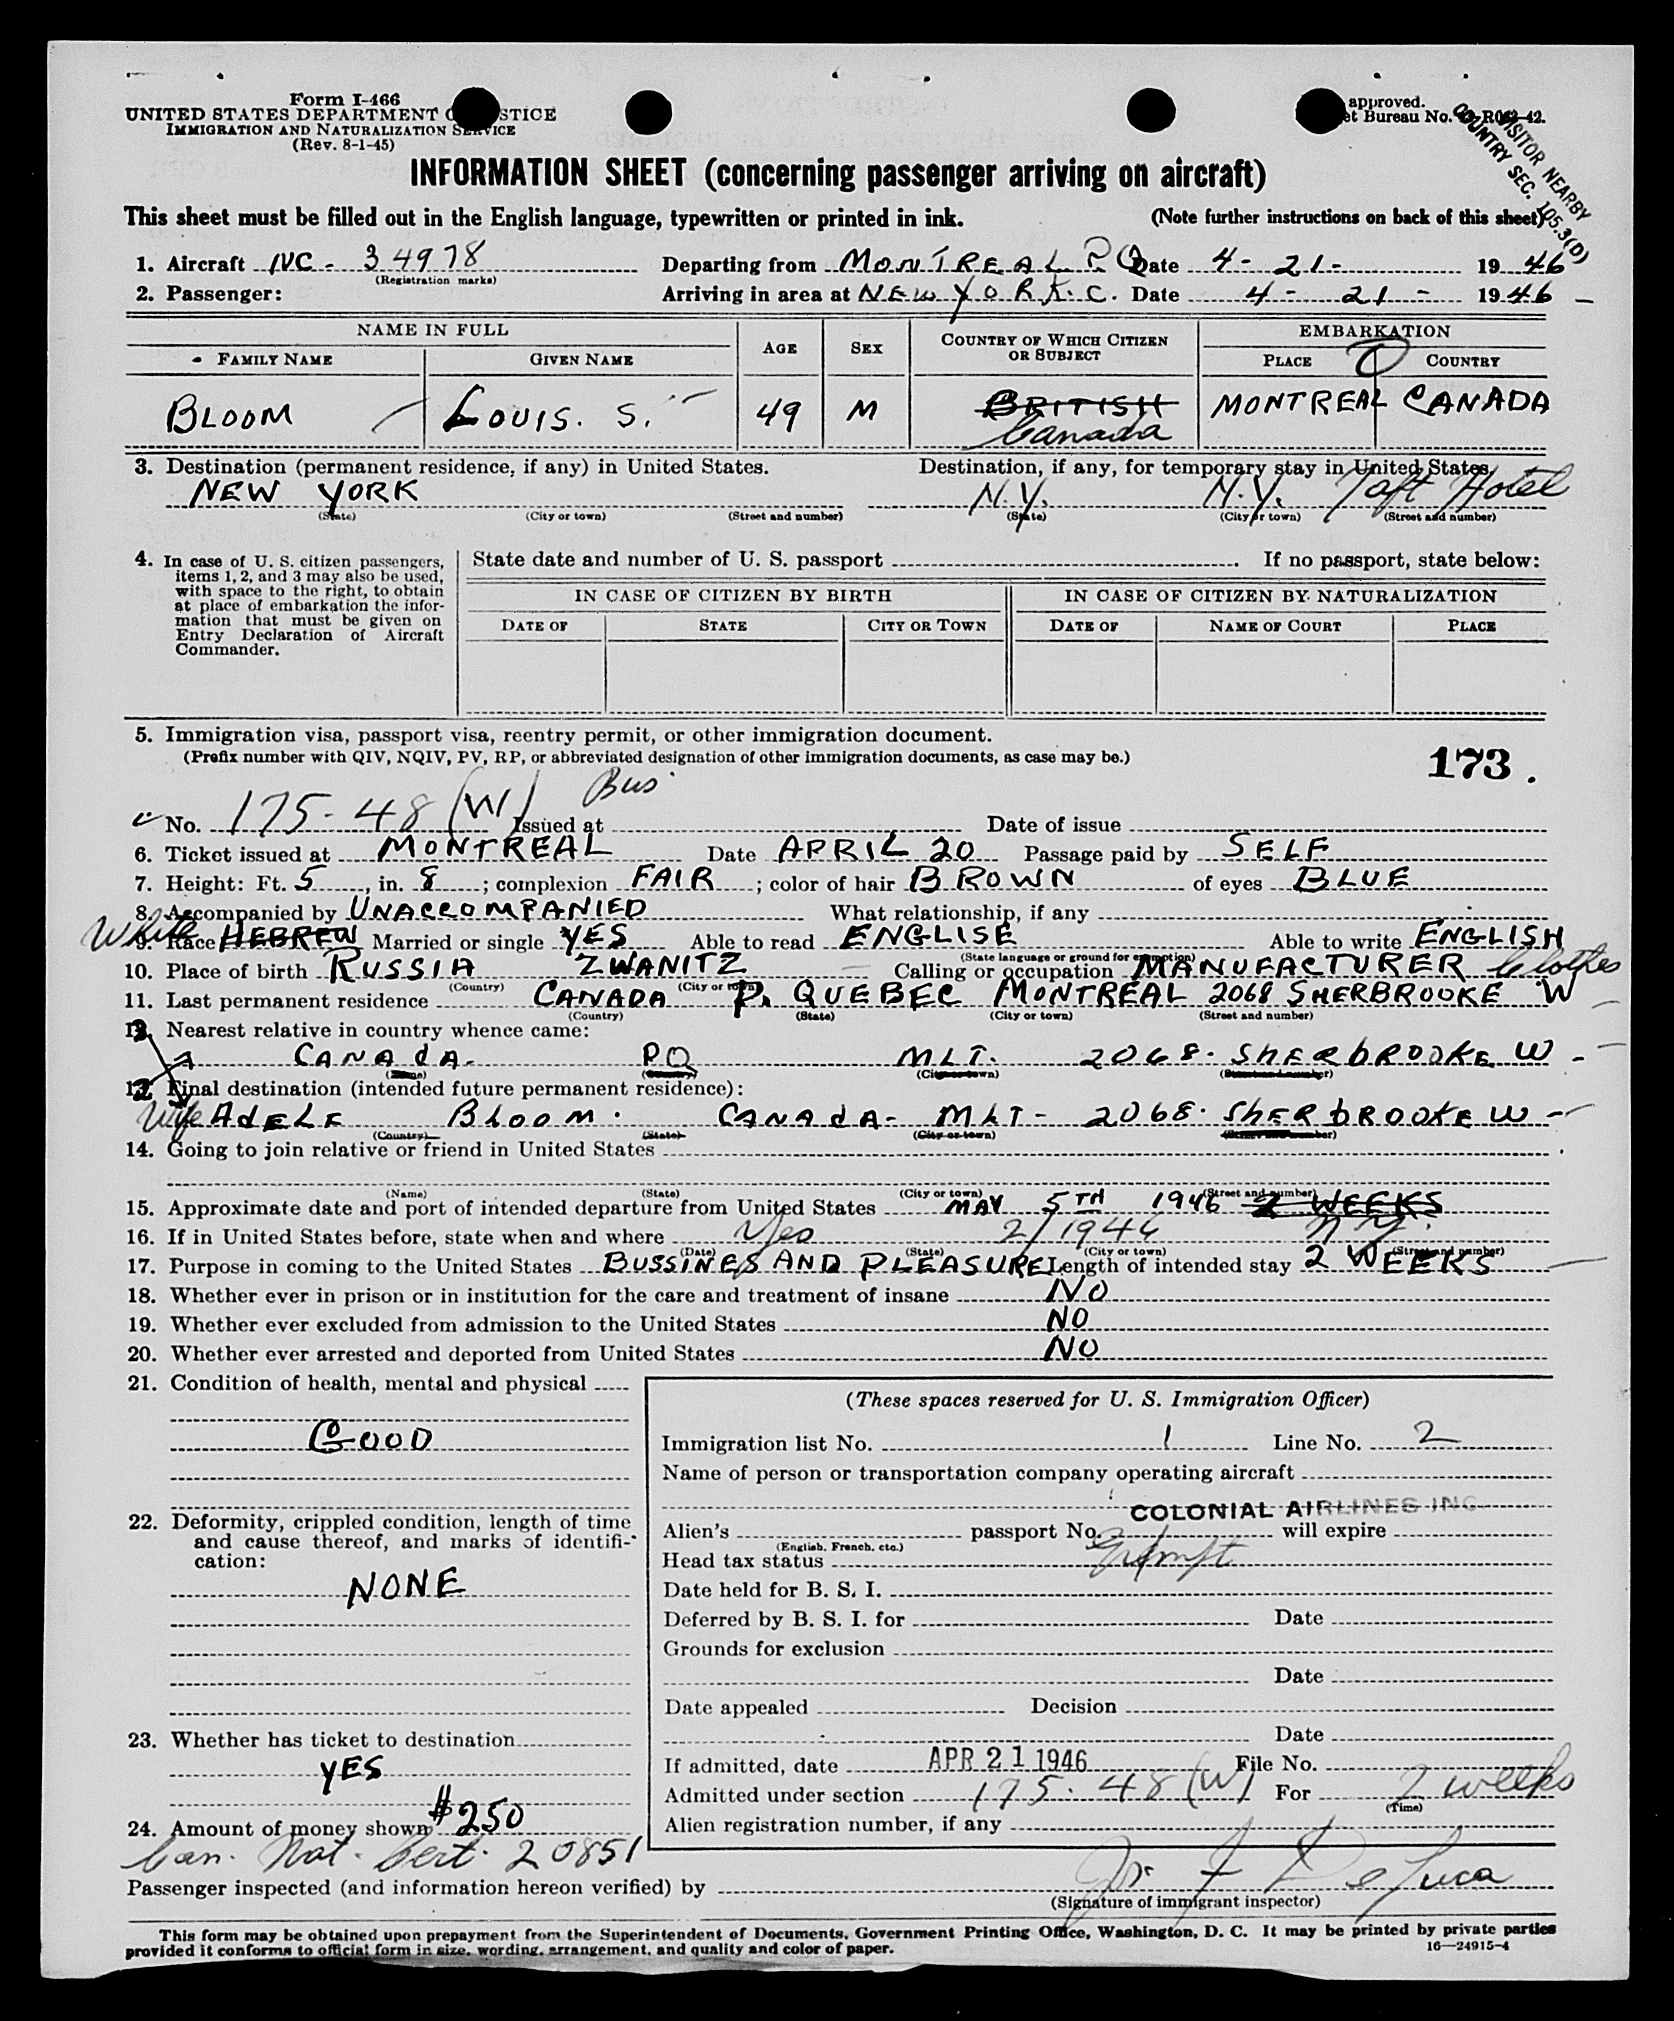 Form I-466
UNITED STATES DEPARTMENT STICE
IMMIGRATION AND NATURALIZATION SERVICE
(Rev. 8-1-45)
approved.
et Bureau No.
VISITOR NEARBY
COUNTRY SEC. 105.3(D)
INFORMATION SHEET (concerning passenger arriving on aircraft)
This sheet must be filled out in the English language, typewritten or printed in ink. (Note further instructions on back of this sheet)
1. Aircraft NC - 34978 Departing from MONTREAL P.Q Date 4-21- 1946
(Registration marks)
2. Passenger: Arriving in area at NEW YORK. C. Date 4-21- 1946
NAME IN FULL AGE SEX COUNTRY OF WHICH CITIZEN OR SUBJECT EMBARKATION
FAMILY NAME GIVEN NAME PLACE COUNTRY
BLOOM LOUIS. S. 49 M BRITISH MONTREAL CANADA
Canada
3. Destination (permanent residence, if any) in United States. Destination, if any, for temporary stay in United States,
NEW YORK N.Y. N.Y. Taft Hotel
(State) (City or town) (Street and number) (State) (City or town) (Street and number)
4. In case of U. S. citizen passengers, items 1, 2, and 3 may also be used, with space to the right, to obtain at place of embarkation the information that must be given on Entry Declaration of Aircraft Commander.
State date and number of U. S. passport If no passport, state below:
IN CASE OF CITIZEN BY BIRTH IN CASE OF CITIZEN BY NATURALIZATION
DATE OF STATE CITY OR TOWN DATE OF NAME OF COURT PLACE
5. Immigration visa, passport visa, reentry permit, or other immigration document.
(Prefix number with QIV, NQIV, PV, RP, or abbreviated designation of other immigration documents, as case may be.)
173.
Bus
No. 175-48 (W) Issued at Date of issue
6. Ticket issued at MONTREAL Date APRIL 20 Passage paid by SELF
7. Height: Ft. 5, in. 8; complexion FAIR; color of hair BROWN of eyes BLUE
8. Accompanied by UNACCOMPANIED What relationship, if any
White 9. Race HEBREW Married or single YES Able to read ENGLISE Able to write ENGLISH
(State language or ground for exemption)
10. Place of birth RUSSIA ZWANITZ Calling or occupation MANUFACTURER Clothes
(Country) (City or town)
11. Last permanent residence CANADA P. QUEBEC MONTREAL 2068 SHERBROOKE W
(Country) (State) (City or town) (Street and number)
12. Nearest relative in country whence came:
CANADA. PQ MLT. 2068. SHERBROOKE W -
(City or town)
13. Final destination (intended future permanent residence):
Wife ADELE BLOOM. CANADA- MLT- 2068. SHERBROOKE W -
(Country) (State) (City or town) (Street and number)
14. Going to join relative or friend in United States
(Name) (State) (City or town) (Street and number)
15. Approximate date and port of intended departure from United States MAY 5TH 1946 2 WEEKS
16. If in United States before, state when and where Yes 2/1946 N.Y.
(Date) (State) (City or town) (Street and number)
17. Purpose in coming to the United States BUSSINES AND PLEASURE Length of intended stay 2 WEEKS
18. Whether ever in prison or in institution for the care and treatment of insane NO
19. Whether ever excluded from admission to the United States NO
20. Whether ever arrested and deported from United States NO
21. Condition of health, mental and physical
GOOD
22. Deformity, crippled condition, length of time and cause thereof, and marks of identification:
NONE
23. Whether has ticket to destination
YES
24. Amount of money shown $250
Can. Nat. Cert. 20851
(These spaces reserved for U. S. Immigration Officer)
Immigration list No. 1 Line No. 2
Name of person or transportation company operating aircraft
COLONIAL AIRLINES INC.
Alien's passport No. will expire
(English, French, etc.)
Head tax status Exempt
Date held for B. S. I.
Deferred by B. S. I. for Date
Grounds for exclusion
Date
Date appealed Decision
Date
If admitted, date APR 21 1946 File No.
Admitted under section 175.48 (W) For 2 weeks
(Time)
Alien registration number, if any
Passenger inspected (and information hereon verified) by De Luca
(Signature of immigrant inspector)
This form may be obtained upon prepayment from the Superintendent of Documents, Government Printing Office, Washington, D. C. It may be printed by private parties
provided it conforms to official form in size, wording, arrangement, and quality and color of paper. 16—24915-4